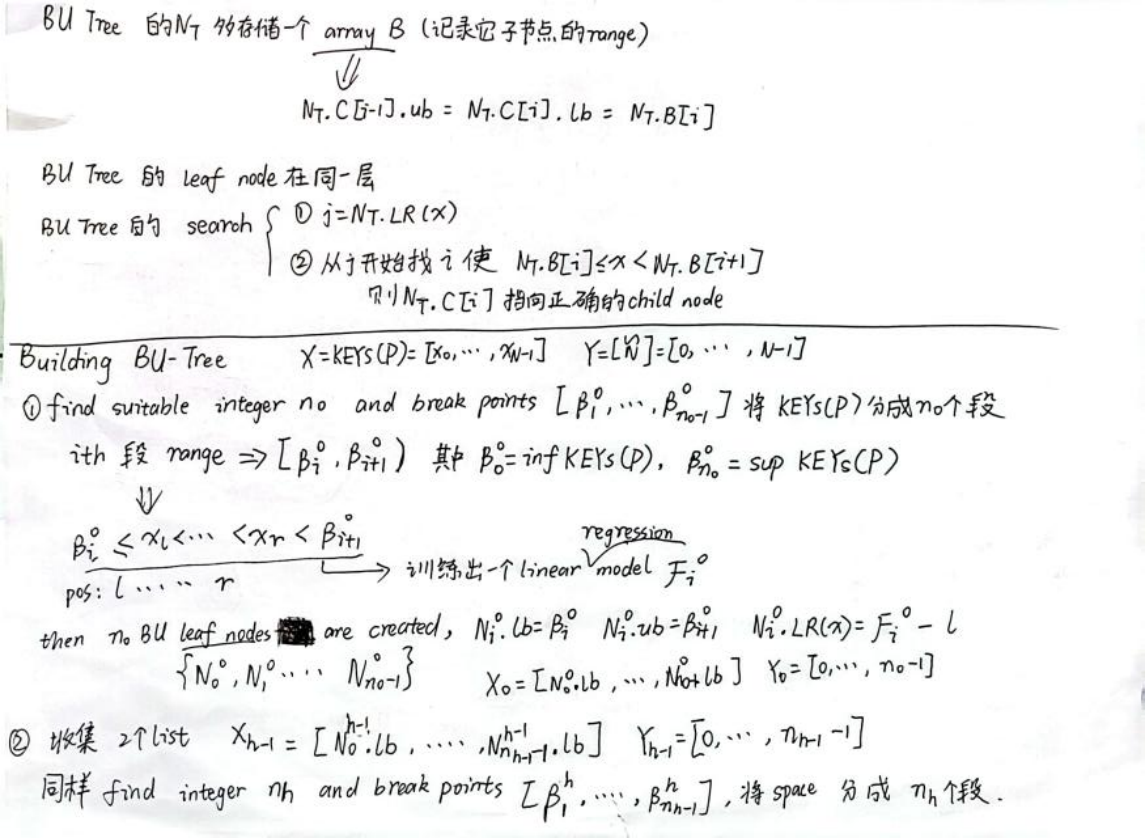 BU Tree 的N_T 多存储一个 array B (记录它子节点的range)
⇓
N_T.C[i-1].ub = N_T.C[i].lb = N_T.B[i]
BU Tree 的 leaf node 在同一层
BU Tree 的 search { ① j=N_T.LR(x)
② 从j开始找 i 使 N_T.B[i]≤x<N_T.B[i+1]
则N_T.C[i] 指向正确的child node
Building BU-Tree X=KEYs(P)=[x_0,⋯,x_{N-1}] Y=[N]=[0,⋯,N-1]
① find suitable integer n_0 and break points [β_1^0,⋯,β_{n_0-1}^0] 将 KEYs(P)分成n_0个段
ith 段 range ⇒ [β_i^0, β_{i+1}^0) 其中 β_0^0=inf KEYs(P), β_{n_0}^0=sup KEYs(P)
⇓
regression
β_i^0 ≤ x_l<⋯<x_r < β_{i+1}^0 → 训练出一个linear model F_i^0
pos: l ⋯⋯ r
then n_0 BU leaf nodes are created, N_i^0.lb=β_i^0 N_i^0.ub=β_{i+1}^0 N_i^0.LR(x)=F_i^0 - l
{N_0^0, N_1^0 ⋯⋯ N_{n_0-1}^0} X_0=[N_0^0.lb,⋯,N_{n_0-1}^0.lb] Y_0=[0,⋯,n_0-1]
② 收集 2个list X_{h-1} = [N_0^{h-1}.lb, ⋯⋯, N_{n_{h-1}-1}^{h-1}.lb] Y_{h-1}=[0,⋯, n_{h-1}-1]
同样 find integer n_h and break points [β_1^h,⋯⋯,β_{n_h-1}^h], 将 space 分成 n_h个段.